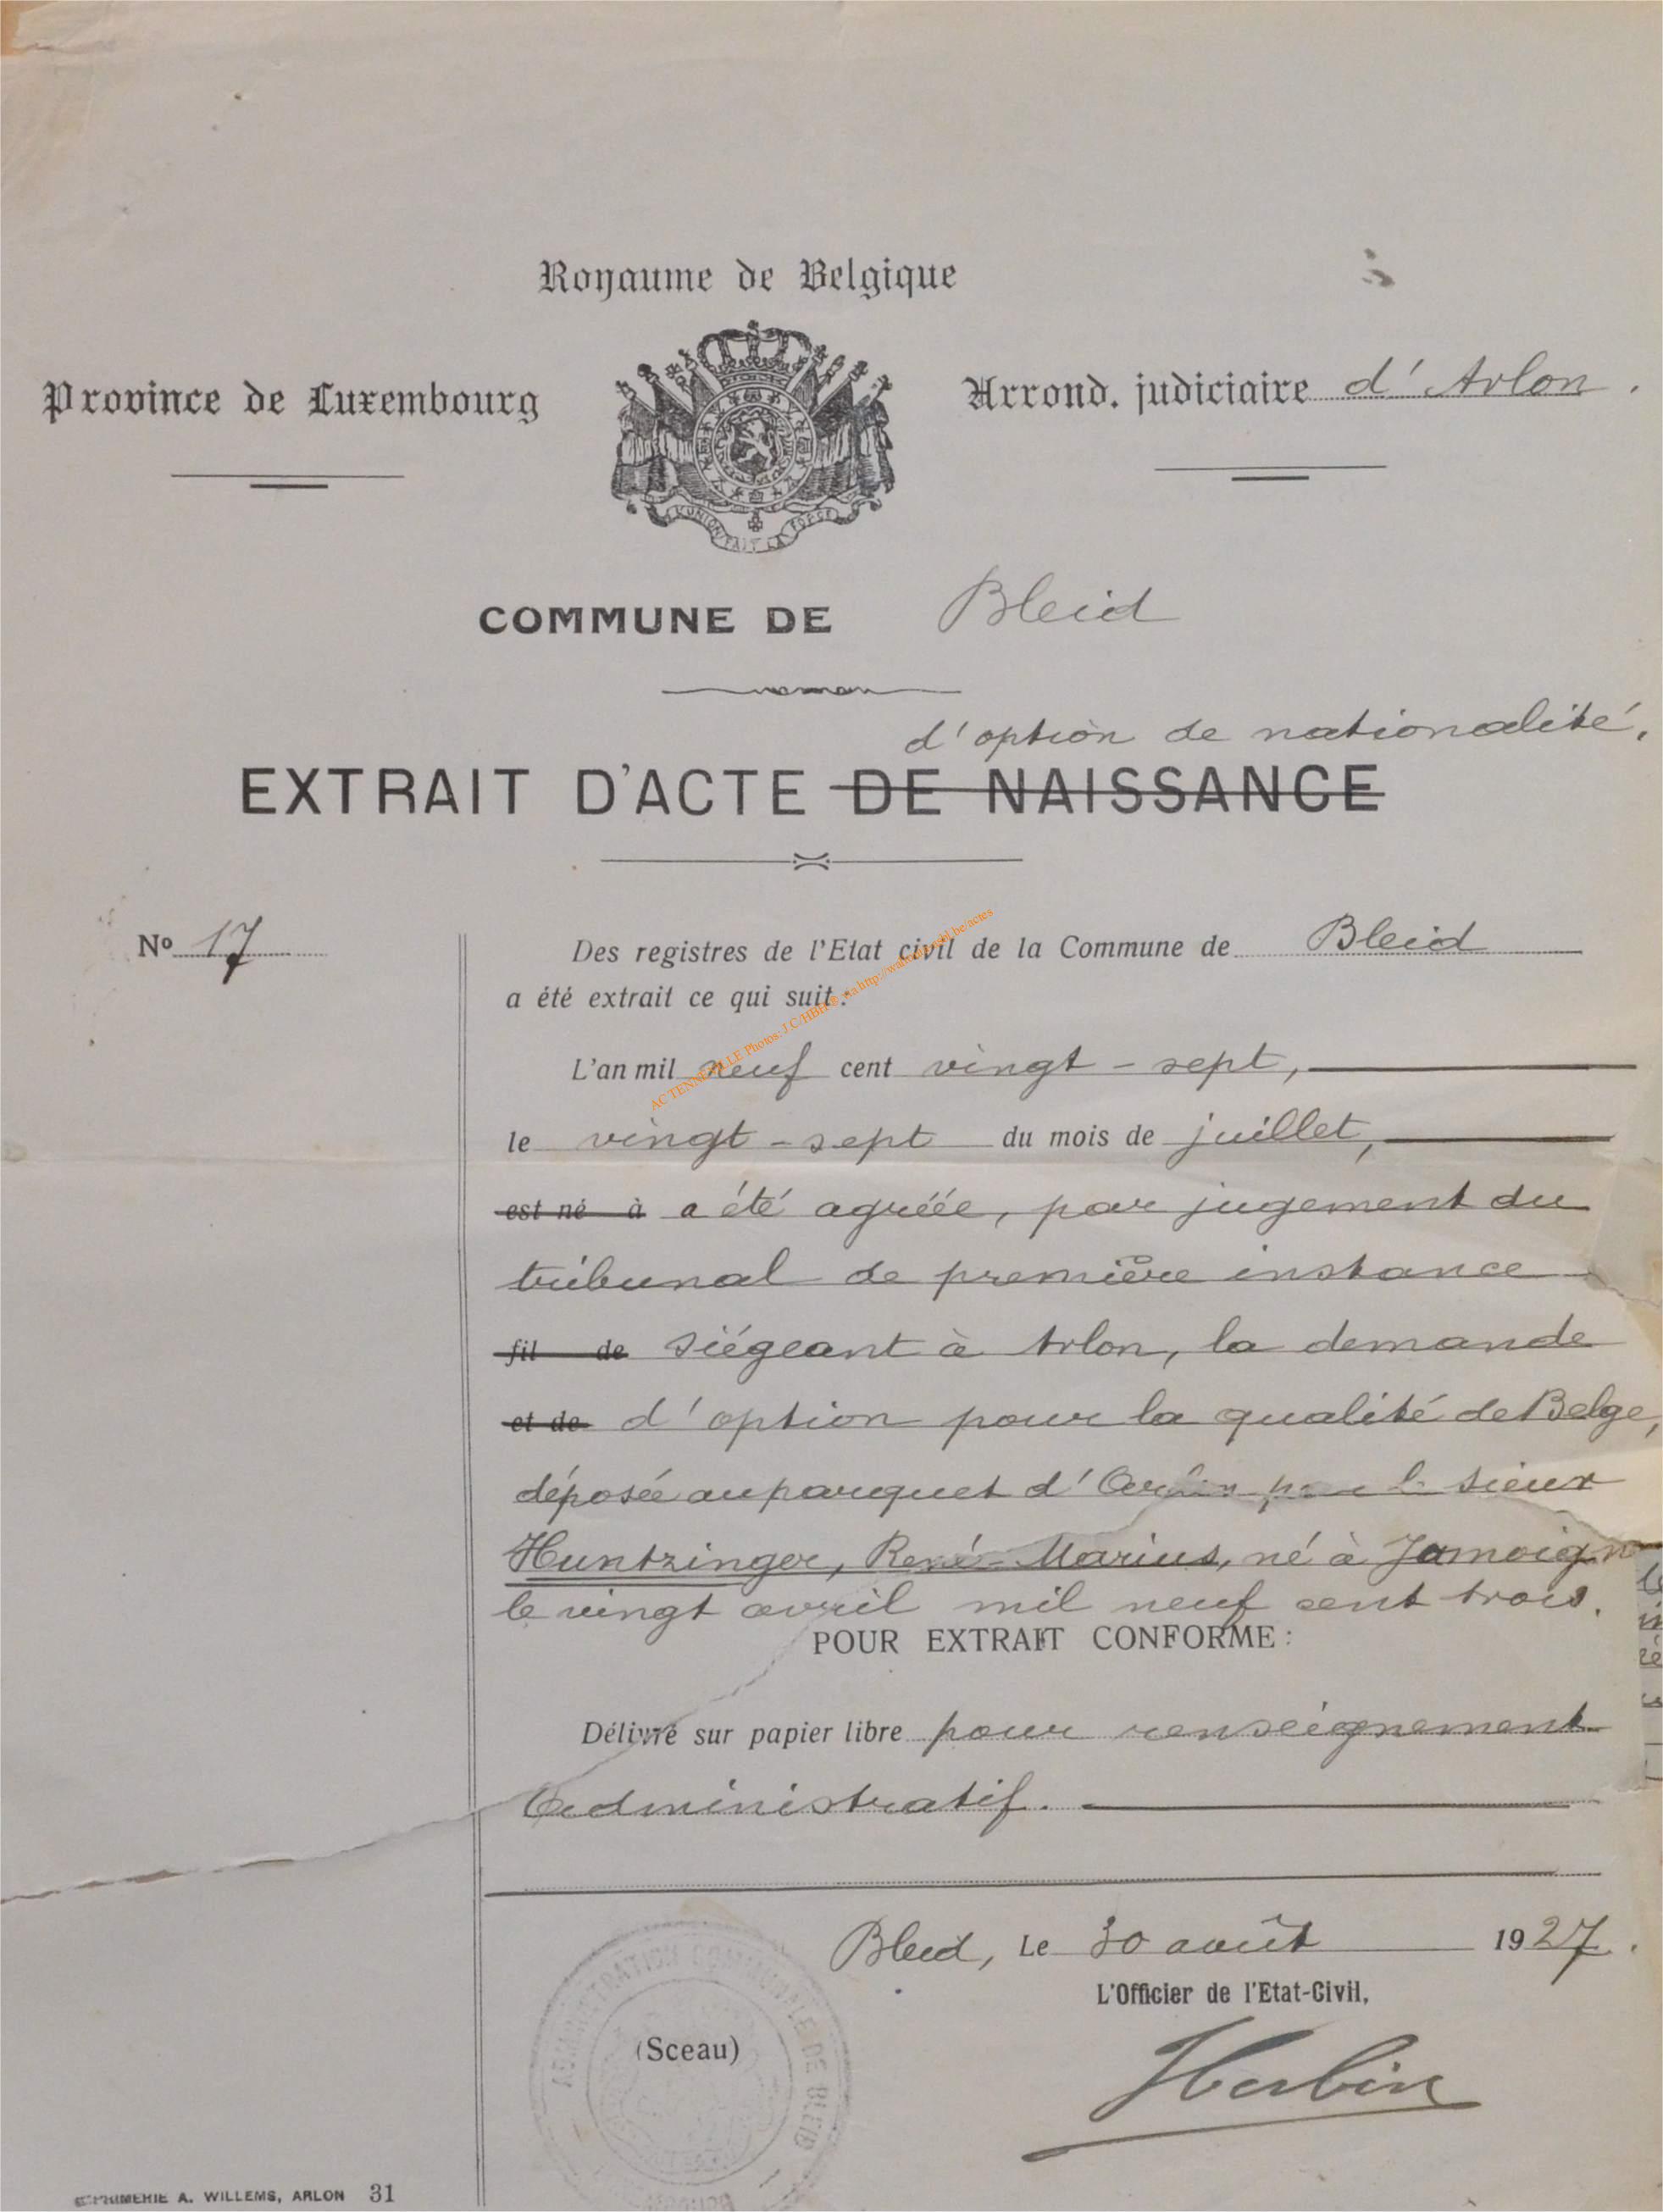 Royaume de Belgique
Province de Luxembourg
Arrond. judiciaire d'Arlon.
L'UNION FAIT LA FORCE
COMMUNE DE Bleid
d'option de nationalité.
EXTRAIT D'ACTE DE NAISSANCE
No 17
Des registres de l'Etat civil de la Commune de Bleid
a été extrait ce qui suit:
L'an mil neuf cent vingt-sept,
le vingt-sept du mois de juillet,
est né à a été agréée, par jugement du
tribunal de première instance
fil de siégeant à Arlon, la demande
et de d'option pour la qualité de Belge,
déposée au parquet d'Arlon par le sieur
Huntzinger, René-Marius, né à Jamoign
le vingt avril mil neuf cent trois.
POUR EXTRAIT CONFORME:
Délivré sur papier libre pour renseignement
Administratif.
Bleid, Le 30 août 1927.
L'Officier de l'Etat-Civil,
(Sceau)
Herbin
ADMINISTRATION COMMUNALE DE BLEID
IMPRIMERIE A. WILLEMS, ARLON 31